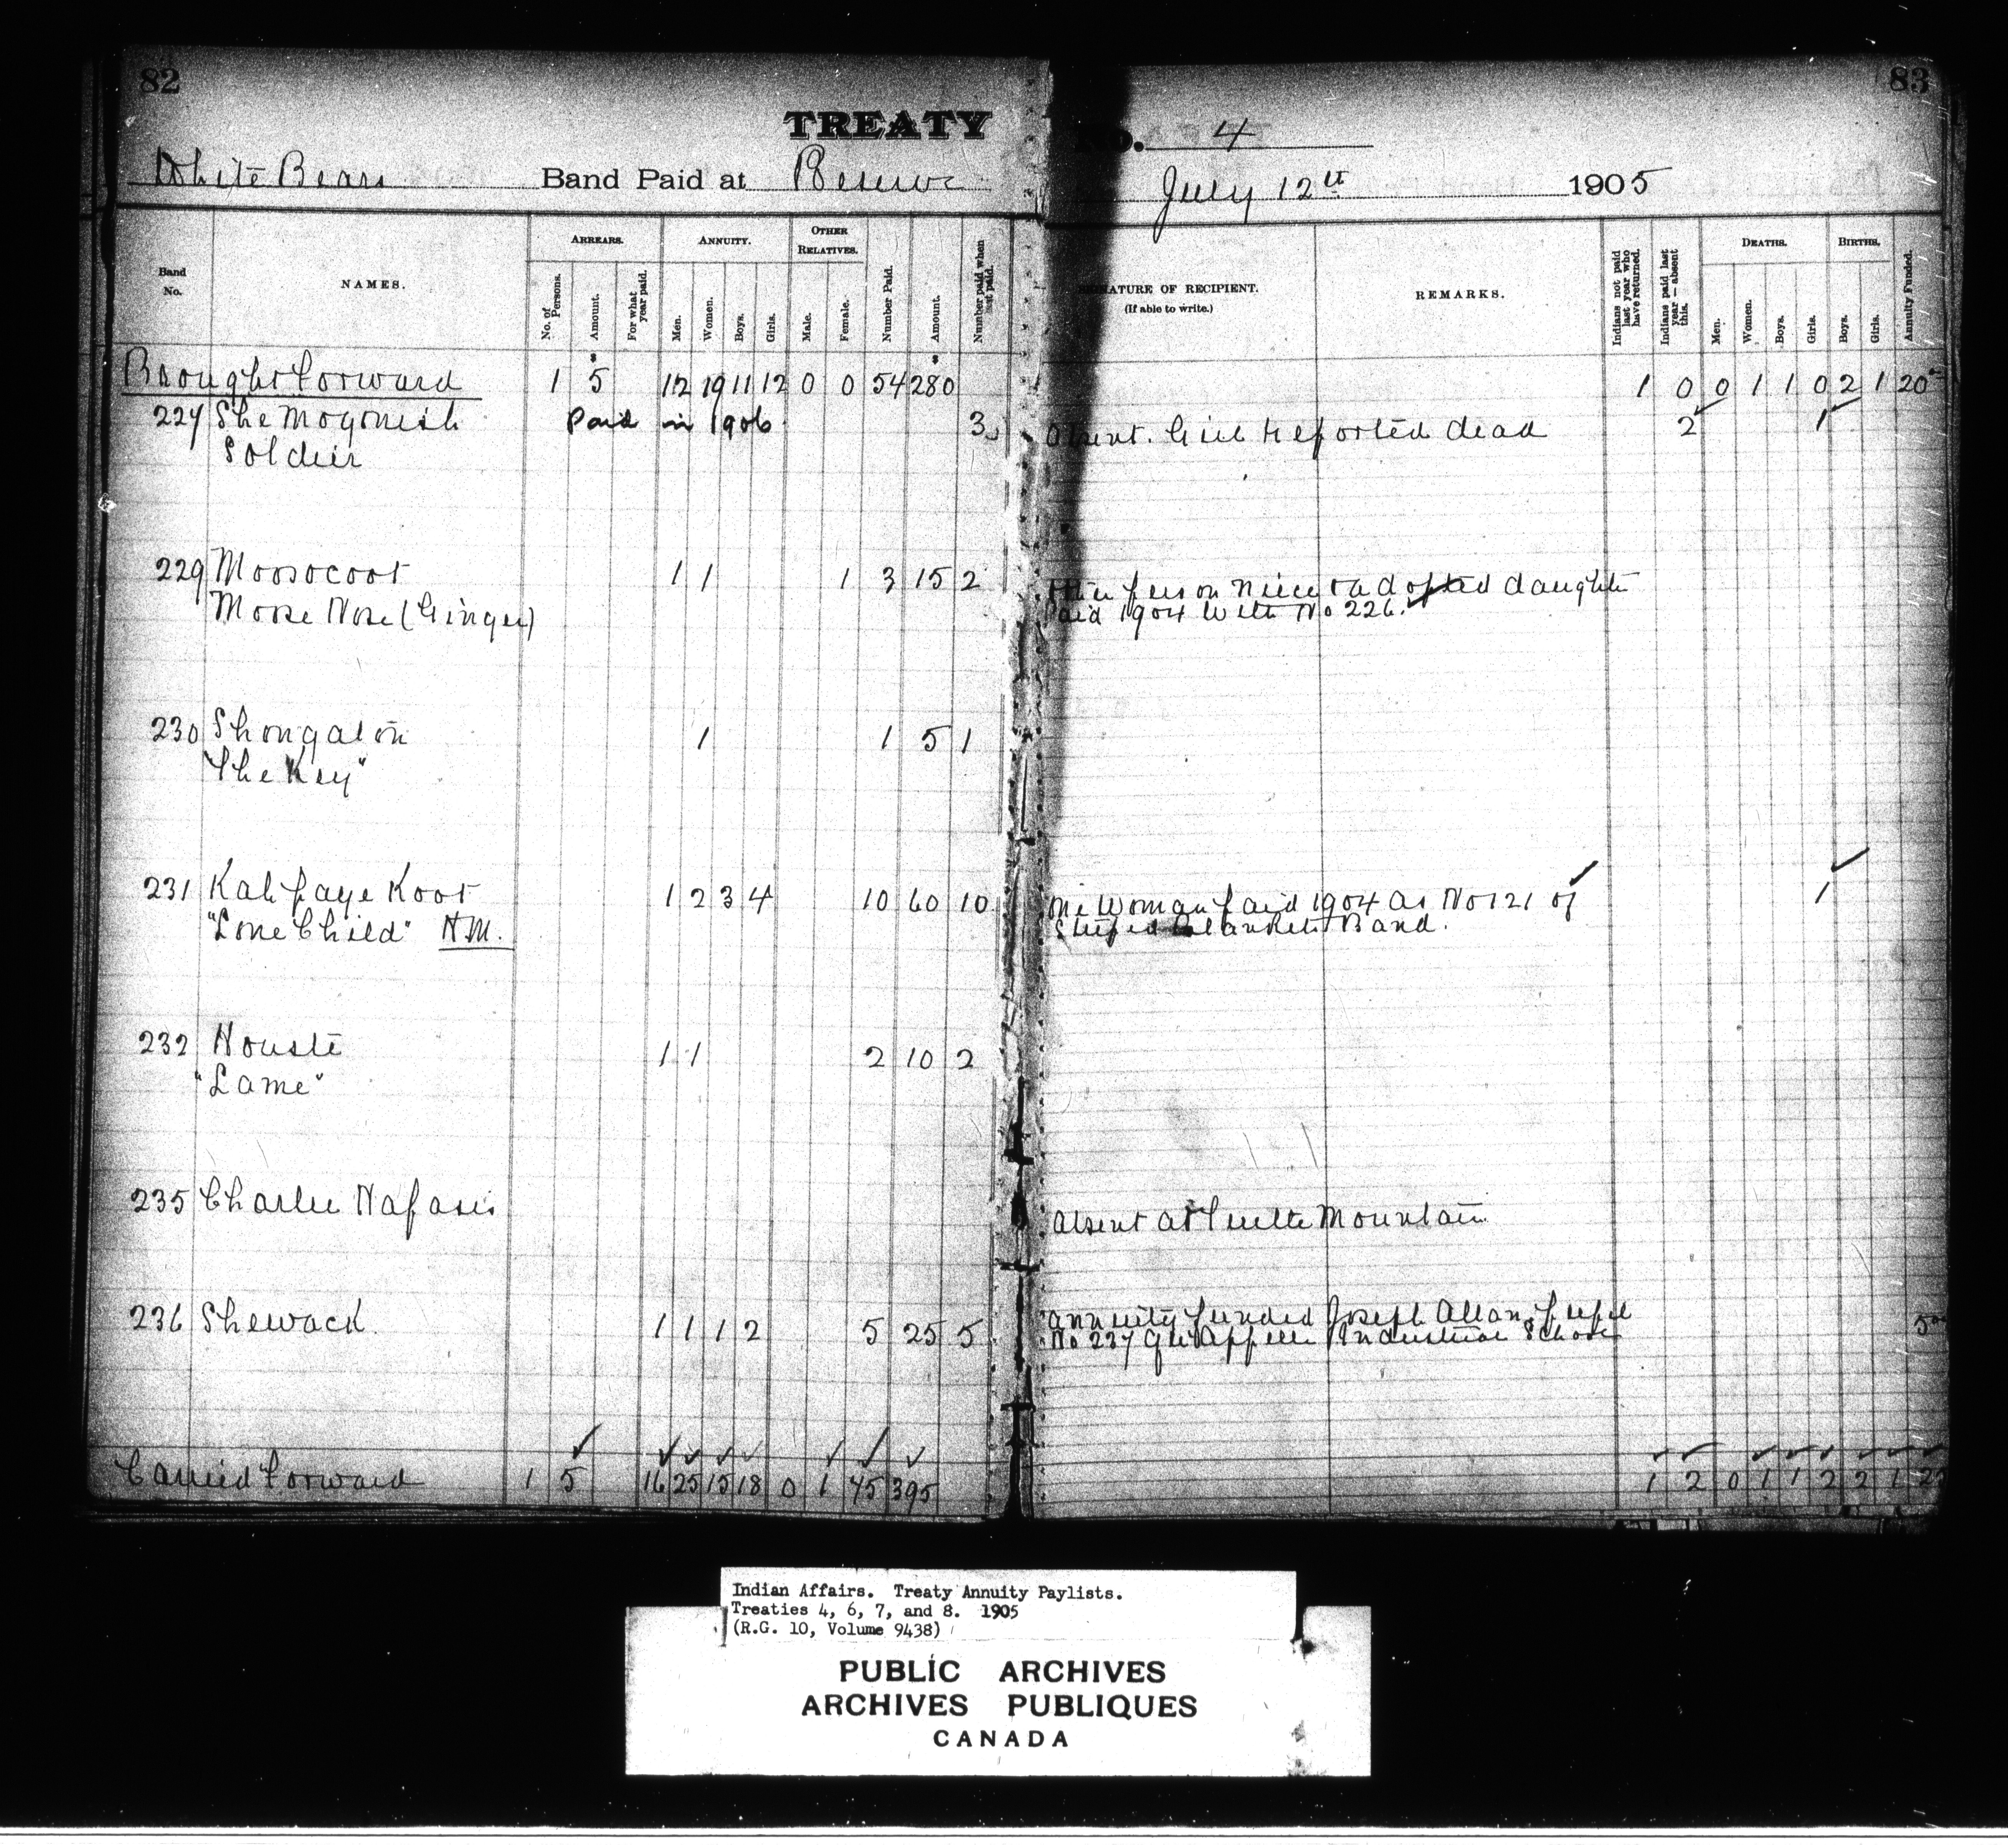 82
83
TREATY No. 4
White Bears Band Paid at Reserve July 12th 1905
Band No.
NAMES.
ARREARS.
No. of Persons.
Amount.
For what year paid.
ANNUITY.
Men.
Women.
Boys.
Girls.
OTHER RELATIVES.
Male.
Female.
Number Paid.
Amount.
Number paid when last paid.
SIGNATURE OF RECIPIENT.
(If able to write.)
REMARKS.
Indians not paid last year who have returned.
Indians paid last year — absent this.
DEATHS.
Men.
Women.
Boys.
Girls.
BIRTHS.
Boys.
Girls.
Annuity Funded.
Brought Forward 1 5 12 19 11 12 0 0 54 280 1 0 0 1 1 0 2 1 20
227 Paid in 1906 3 Absent. Girl reported dead 2 1
Soldier
229 Moosocoot 1 1 1 3 15 2 Other person niece & adopted daughter
Moose Nose (Ginger) Paid 1904 with No 226.
230 1 1 5 1
"The Key"
231 Kah paye Koot 1 2 3 4 10 60 10 One Woman paid 1904 as No 121 of 1
"Lone Child" H.M. Striped Blankets Band.
232 Houste 1 1 2 10 2
"Lame"
235 Charlie Napasis Absent at Turtle Mountain
236 Shewack 1 1 1 2 5 25 5 Annuity funded Joseph Allan, pupil 5
No 237 Qu'Appelle Industrial School
Carried Forward 1 5 16 25 15 18 0 1 75 395 1 2 0 1 1 2 2 1
Indian Affairs. Treaty Annuity Paylists.
Treaties 4, 6, 7, and 8. 1905
(R.G. 10, Volume 9438)
PUBLIC ARCHIVES
ARCHIVES PUBLIQUES
CANADA